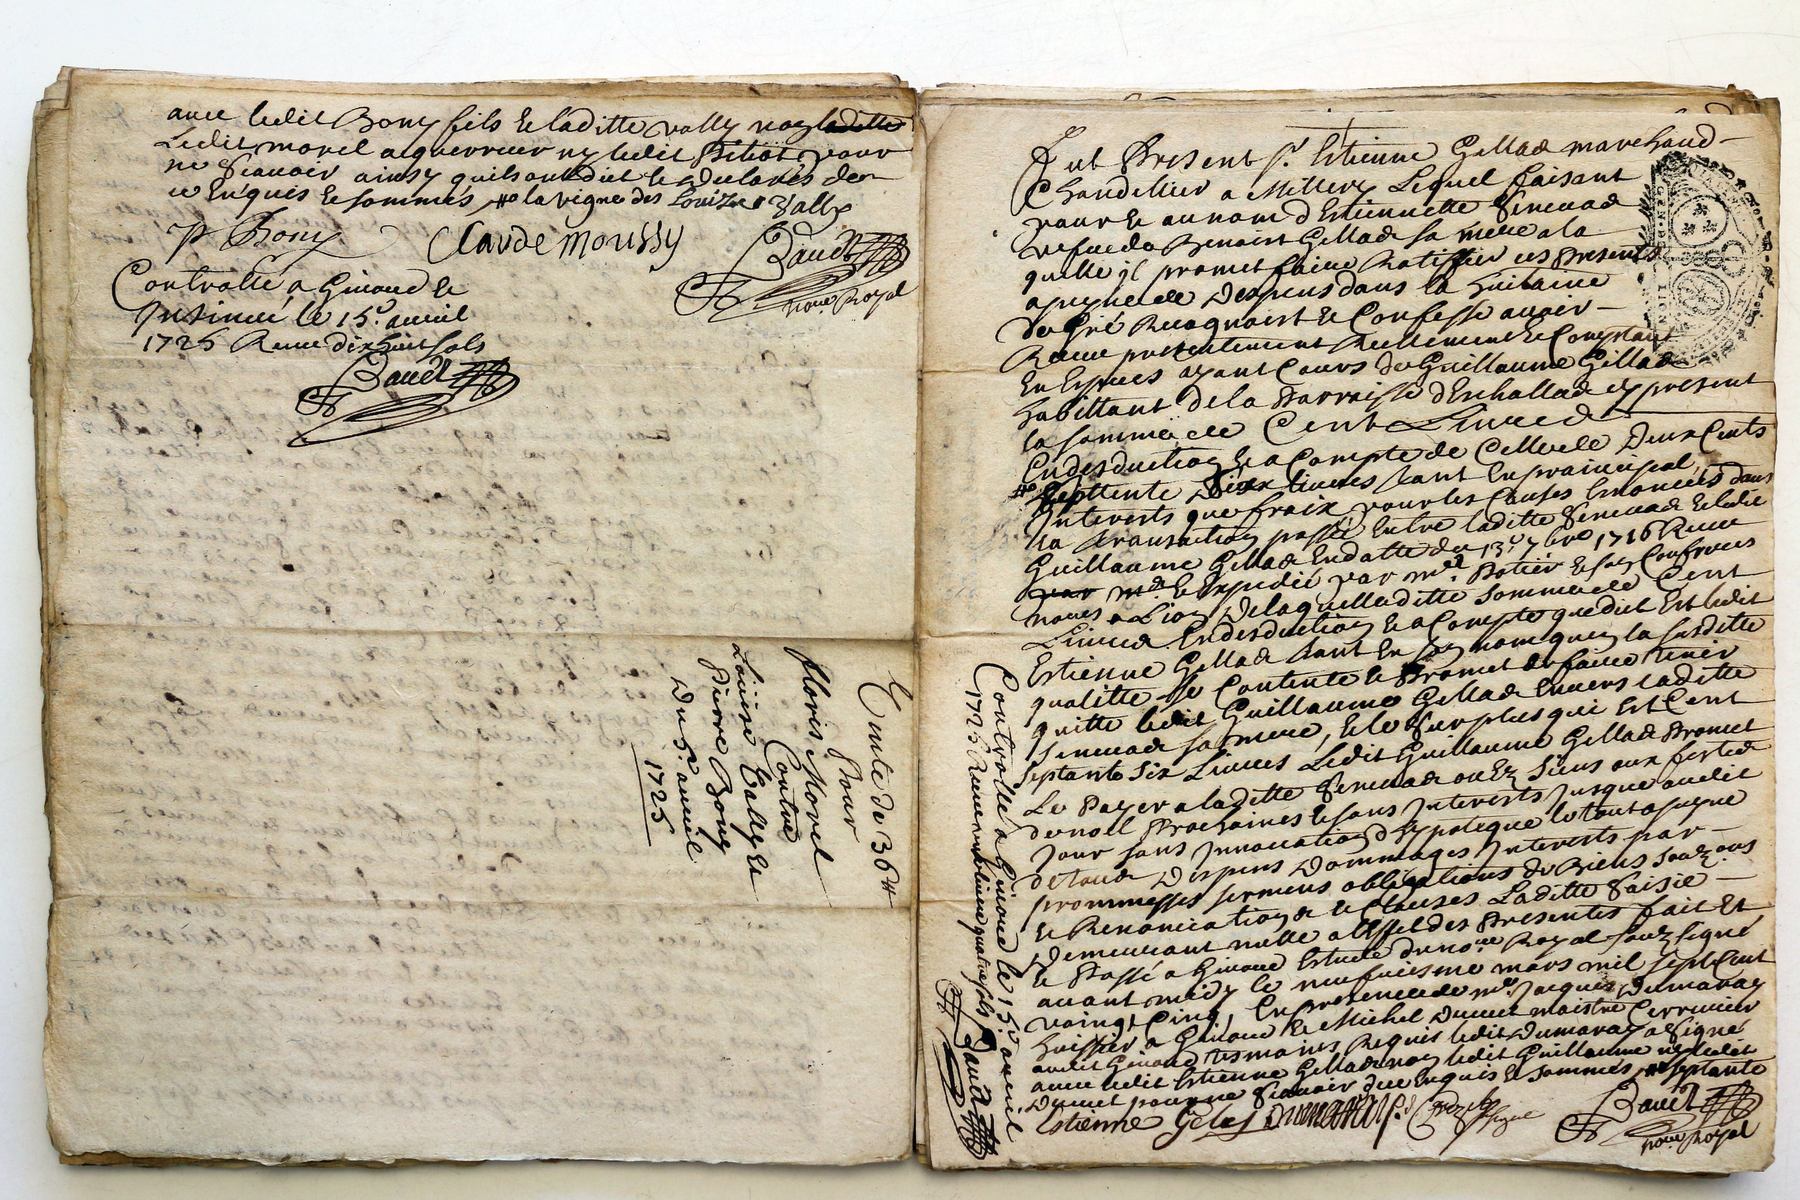 avec ledit Bony fils et laditte vally non laditte
Ledit morel aguerreur ny ledit Pitiot pour
ne scavoir ainsy quils ont dit et declarés de
ce Enquis et sommés, #o la vigne des Louize Vally
p Bony Claude Moussy Baudt
no.re Royal
Controllé a Givord et
Insinué le 15e. avril
1725 Receu dix huit sols
Baudt
Vente de 36 tt
Pour
floris Morel
Contre
Louise Vally et
Pierre Bony
Du 5e. avril
1725
Fut Present sr. Estienne Gellad marchand
Chandelier a Millery Lequel faisant
pour et au nom d'Estiennette
vefue de Benoist Gellad sa mere a la
quelle jl promet faire Ratiffier ces presents
a peyne de despens dans la huitaine
de Gré Recognoist et Confesse avoir
Receu presentement Reellement et Comptant
En Especes ayant Cours de Guillaume Gellad
habittant de la Parroisse d'Eschallad cy present
la somme de Cent Livres
En desduction et a Compte de Celle de Deux Cents
#o septtente Six livres tant En prainsipal,
Interests que fraix pour les Causes Enoncées dans
la transaction passée Entre laditte et ledit
Guillaume Gellad En datte du 13e. 7bre 1716 Receue
par me. et Expedié par me. Potier et son Confreres
no.res a Lion De laquelle ditte somme de Cent
Livres En desduction et a Compte que dit Est ledit
Estienne Gellad tant En son nom quen la susditte
qualitte se Contente et Promet de faire tenir
quitte ledit Guillaume Gellad Envers laditte
sa mere, et le surplus qui Est Cent
septante six Livres Ledit Guillaume Gellad Promet
Le Payer a laditte ou Ez siens aux festes
de noel Prochaines et sans Interests Jusque audit
Jour sans Innovation d'hypoteque le tout a peyne
de tous Despens Dommages Interests par
prommesses sermens obligations de Biens soubz.ons
et Renonciations et Clauses Laditte Saisie
Demeurant nulle a l'effet des Presentes fait Et
et Passé a Givord Estude du no.re Royal soubz signé
avant midy le neufuiesme mars mil sept Cent
vaingt Cinq, En presence de me. Jacques Dumaray
huissier a Givord et Michel Ducret maistre Cerrurier
audit Givord tesmoins Requis ledit Dumaray a signé
avec ledit Estienne Gellad non ledit Guillaume ny ledit
Ducret pour ne Scavoir de ce Enquis et sommés, #o septante
Estienne Gelas Dumaray Baudt
no.re Royal
Controllé a Givord le 15e. avril
1725 Receu une livre quatre sols Baudt